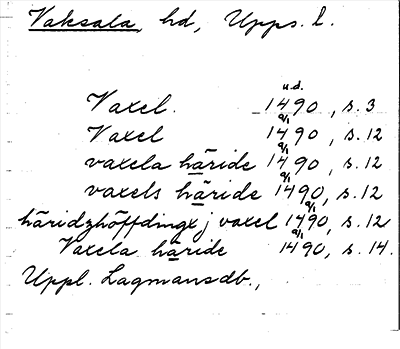 Vaksala, hd, Upps. l.
u.d.
Vaxel. 1490, s. 3
9/1
Vaxel 1490, s. 12
9/1
vaxela häride 1490, s. 12
9/1
vaxels häride 1490, s. 12
9/1
häridzhöffdingx j vaxel 1490, s. 12
9/1
Vaxela häride 1490, s. 14.
Uppl. Lagmansdb.,